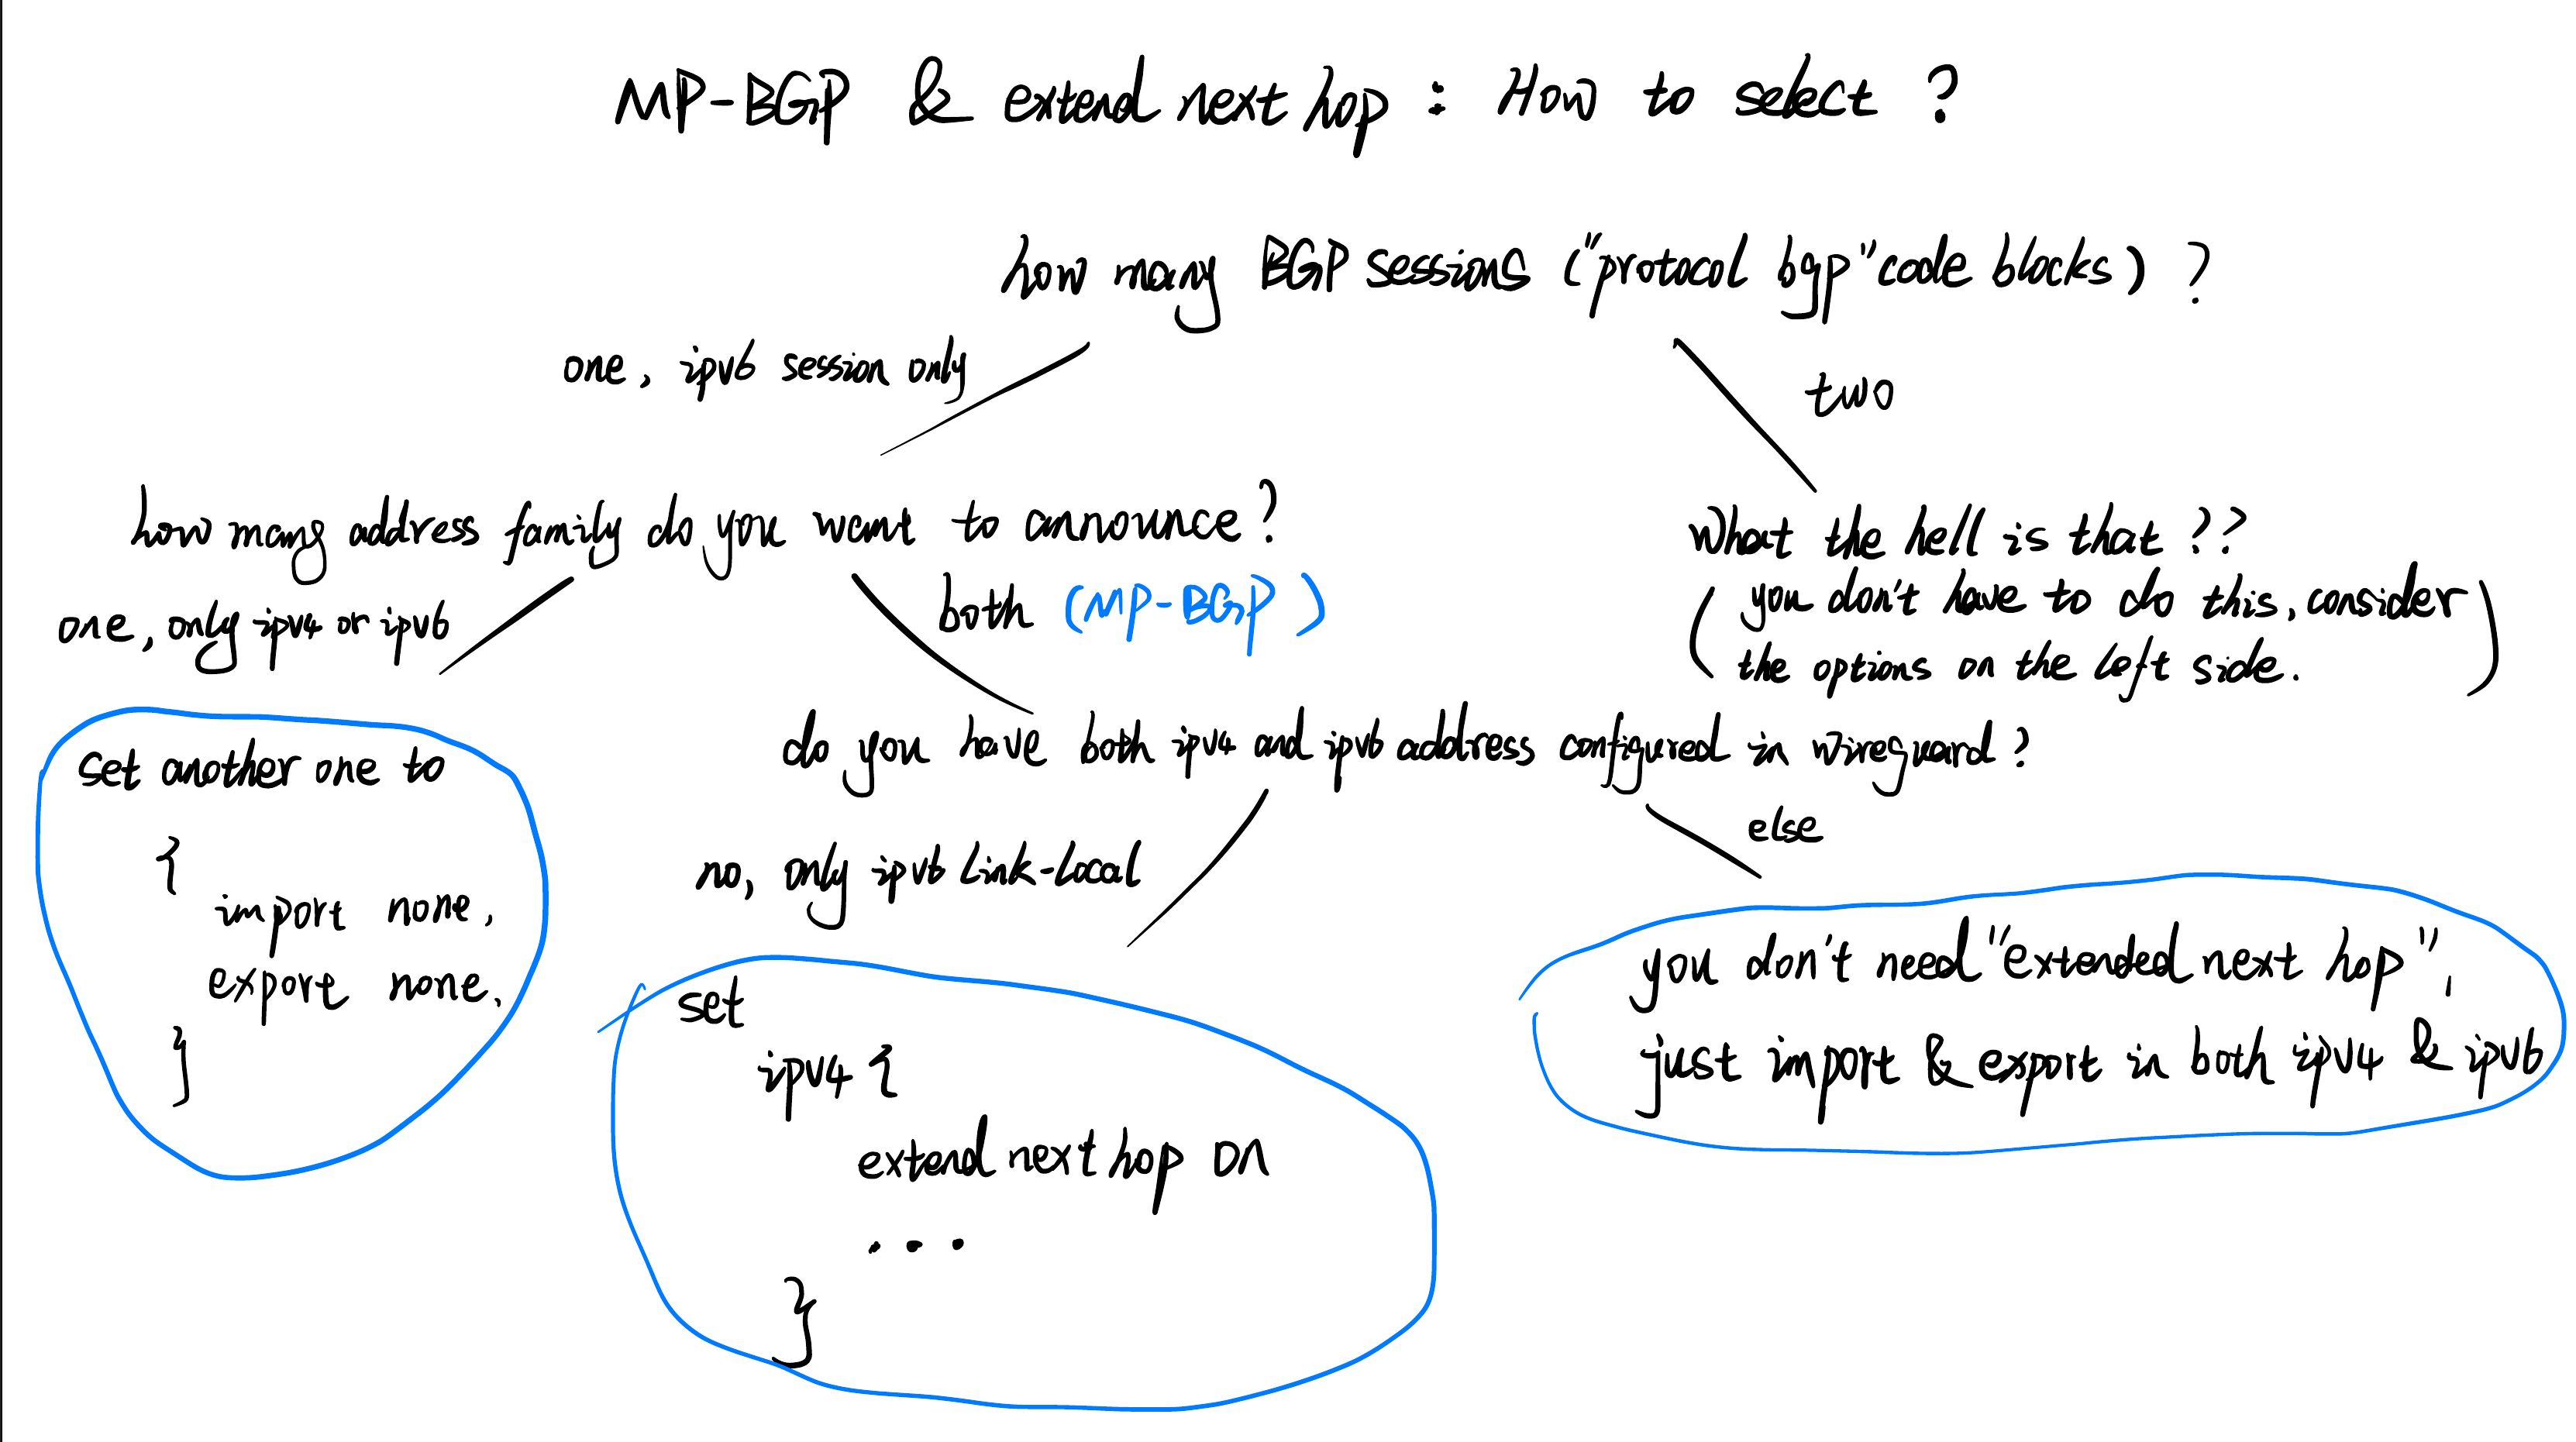 MP-BGP & extend next hop : How to select ?
how many BGP sessions ("protocol bgp" code blocks) ?
one, ipv6 session only
two
how many address family do you want to announce?
What the hell is that ??
(you don't have to do this, consider
the options on the left side.)
one, only ipv4 or ipv6
both (MP-BGP)
do you have both ipv4 and ipv6 address configured in wireguard?
set another one to
{
import none,
export none,
}
no, only ipv6 Link-Local
else
set
ipv4 {
extend next hop on
...
}
you don't need "extended next hop",
just import & export in both ipv4 & ipv6